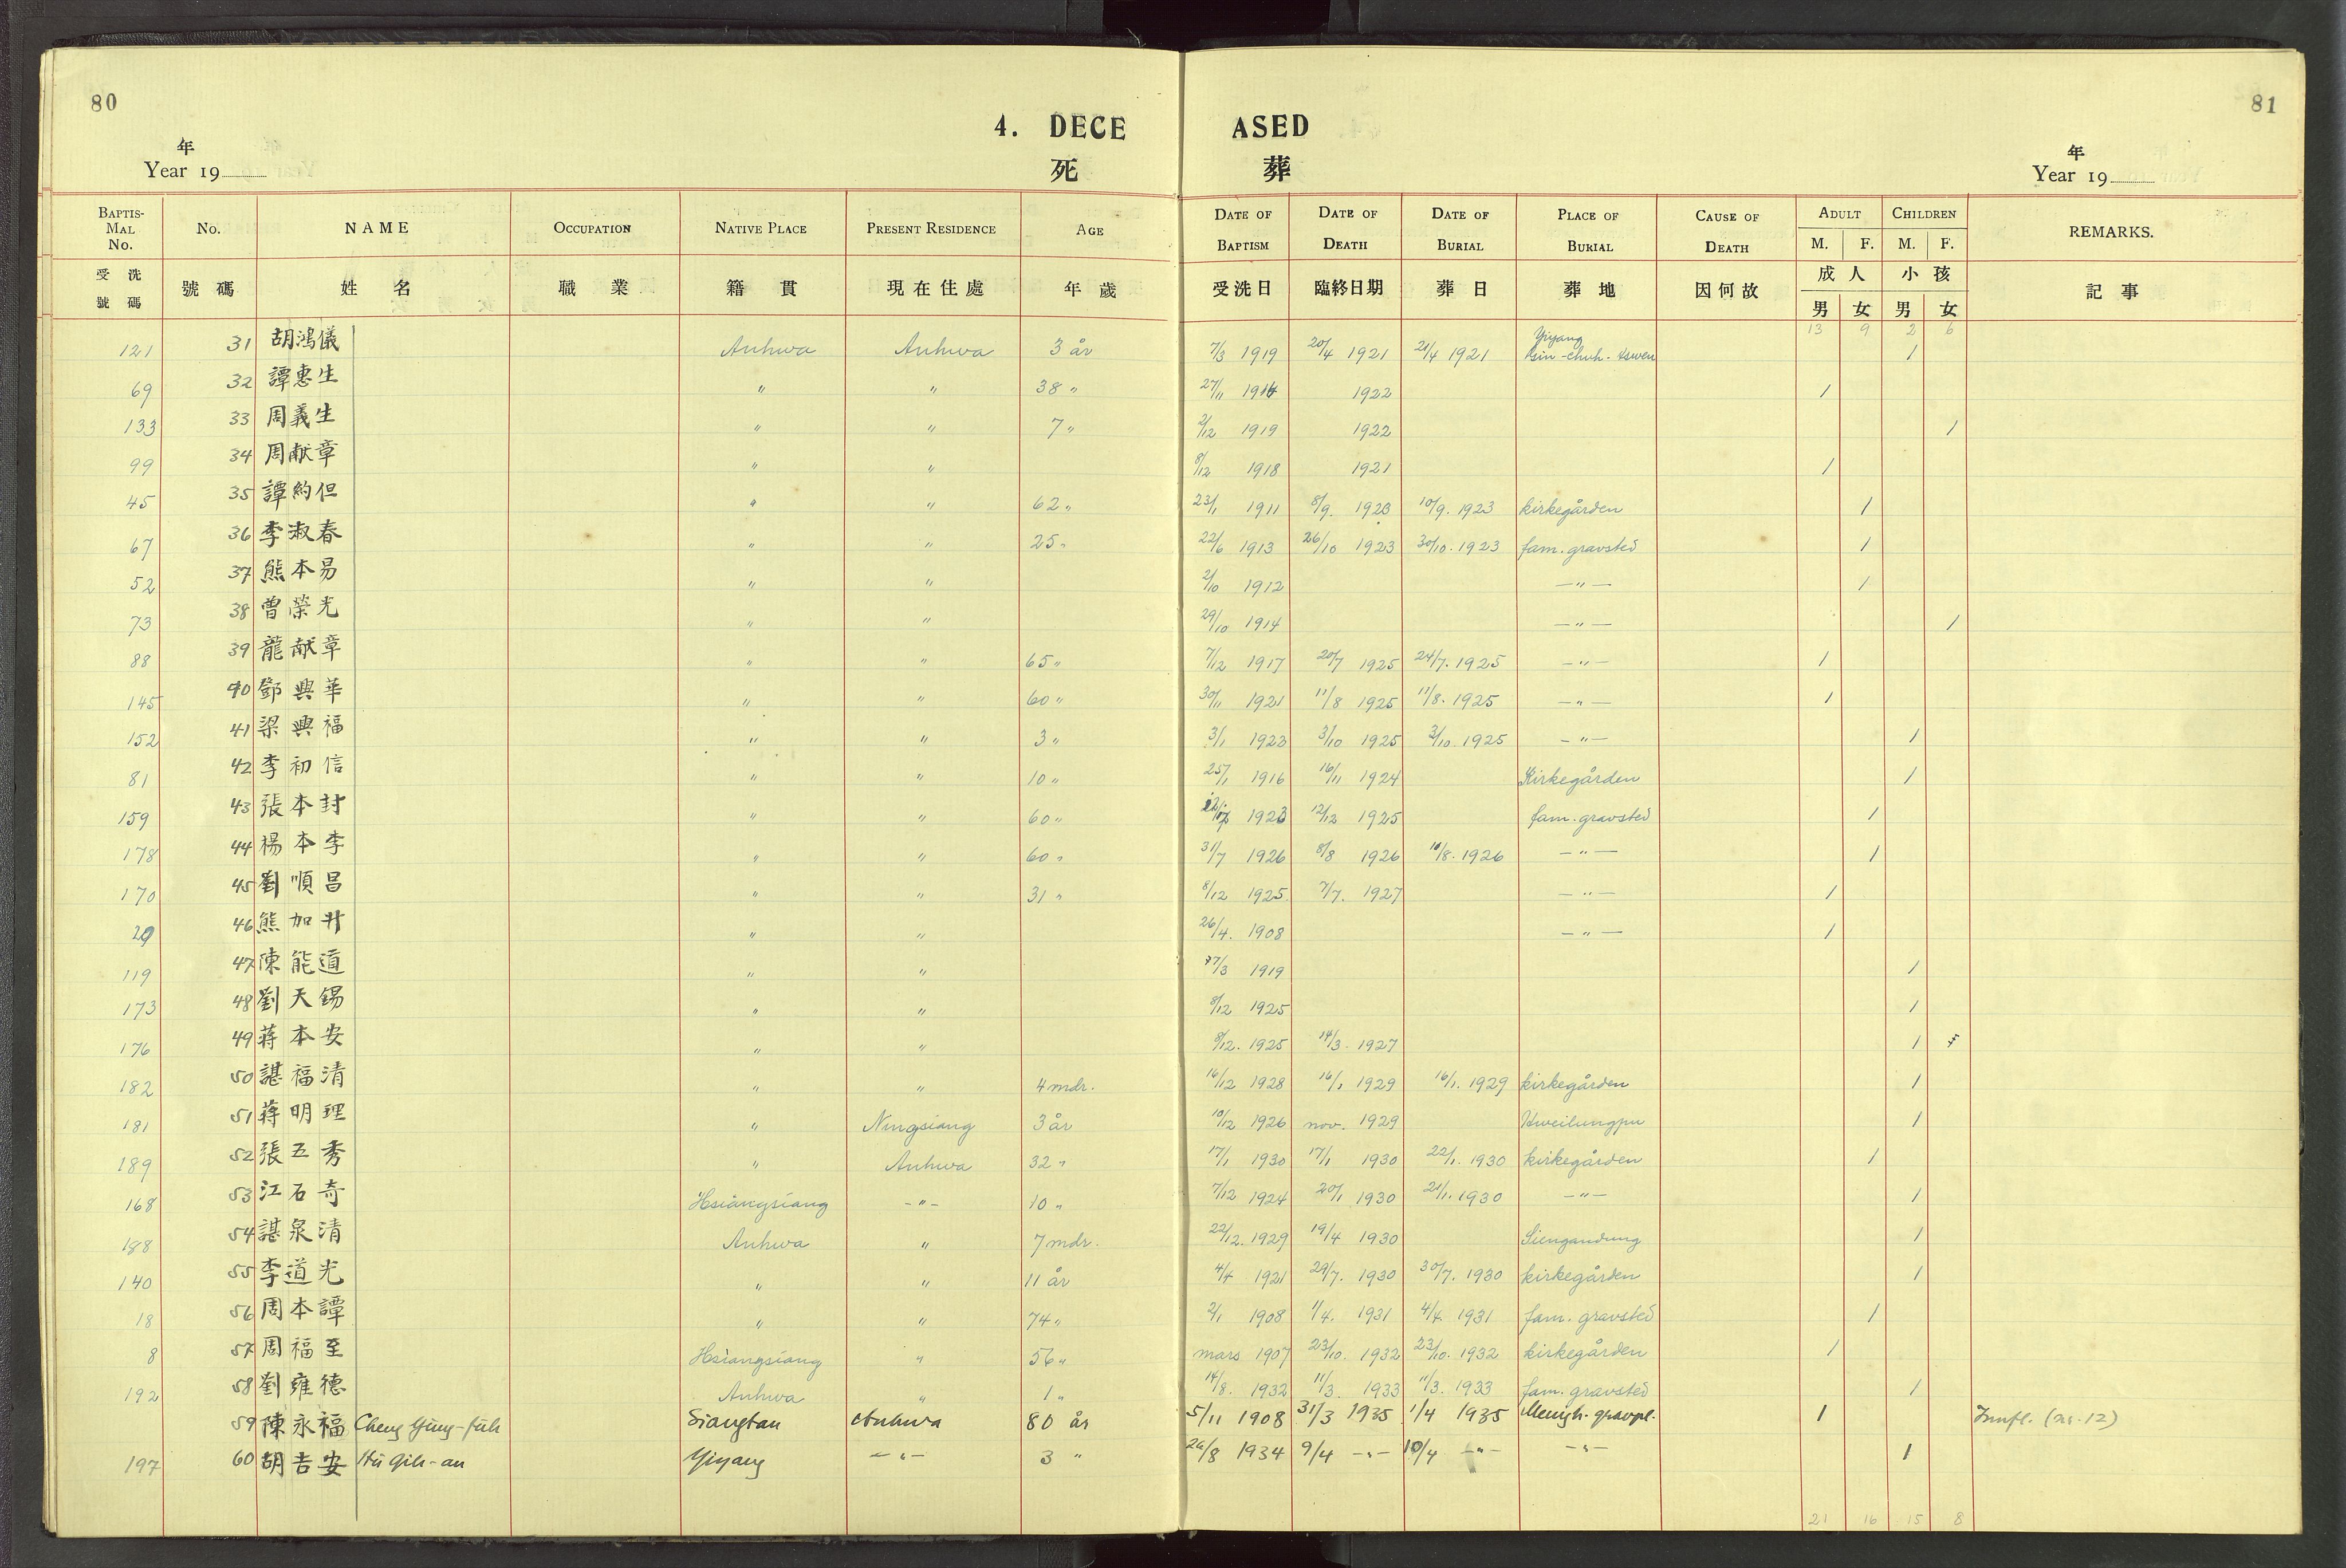 80
81
4. DECEASED
死 葬
年
Year 19
年
Year 19
BAPTISMAL No. No. NAME OCCUPATION NATIVE PLACE PRESENT RESIDENCE AGE DATE OF BAPTISM DATE OF DEATH DATE OF BURIAL PLACE OF BURIAL CAUSE OF DEATH ADULT M. F. CHILDREN M. F. REMARKS.
受洗號碼 號碼 姓名 職業 籍貫 現在住處 年歲 受洗日 臨終日期 葬日 葬地 因何故 成人 男 女 小孩 男 女 記事
13 9 2 6
121 31 胡鴻儀 Anhwa Anhwa 3 år 7/3 1919 20/4 1921 21/4 1921 Yiyang 1
69 32 譚惠生 " " 38 " 27/11 1922 1
133 33 周義生 " " 7 " 2/12 1919 1922 1
99 34 周献章 " " 8/12 1918 1921 1
45 35 譚約但 " " 62 " 23/1 1911 8/9. 1923 10/9. 1923 kirkegården 1
67 36 李淑春 " " 25 " 22/6 1913 26/10 1923 30/10. 1923 fam. gravsted 1
52 37 熊本易 " " 2/10 1912 - " - 1
73 38 曾榮光 " " 29/10 1914 - " - 1
88 39 龍献章 " " 65 " 7/12 1917 20/7 1925 24/7. 1925 - " - 1
145 40 鄧興華 " " 60 " 30/11 1921 11/8 1925 11/8. 1925 - " - 1
152 41 梁興福 " " 3 " 3/1 1923 3/10 1925 3/10. 1925 - " - 1
81 42 李初信 " " 10 " 25/1 1916 16/11 1924 Kirkegården 1
159 43 張本封 " " 60 " 1923 12/12 1925 fam. gravsted 1
178 44 楊本李 " " 60 " 31/7 1926 8/8 1926 10/8. 1926 - " - 1
170 45 劉順昌 " " 31 " 8/12 1925 7/7. 1927 - " - 1
29 46 熊加 " " 26/4. 1908 - " - 1
119 47 陳能道 " " 1919 1
173 48 劉天錫 " " 8/12 1925 1
176 49 蒋本安 " " 8/12. 1925 14/3. 1927 1
182 50 諶福清 " " 4 mdr. 16/12 1928 16/1 1929 16/1. 1929 kirkegården 1
181 51 蒋明理 " Ningsiang 3 år 10/12 1926 nov. 1929 Hweilungpu 1
189 52 張五秀 " Anhwa 32 " 17/1 1930 17/1 1930 22/1. 1930 kirkegården 1
168 53 江石奇 Hsiangsiang - " - 10 " 7/12 1924 20/1 1930 21/1. 1930 - " - 1
188 54 諶泉清 Anhwa " 7 mdr. 22/12. 1929 19/4 1930 1
140 55 李道光 " " 11 år 4/4 1921 29/7. 1930 30/7. 1930 kirkegården 1
18 56 周本譚 " " 74 " 2/1 1908 1/4. 1931 4/4. 1931 fam. gravsted 1
8 57 周福至 Hsiangsiang " 56 " mars 1907 23/10. 1932 23/10. 1932 kirkegården 1
192 58 劉雍德 Anhwa " 1 " 14/8. 1932 11/3. 1933 11/3. 1933 fam. gravsted 1
59 陳永福 Cheng Yung-fuh Siangtan Anhwa 80 år 5/11 1908 31/3 1935 1/4 1935 Menigh. gravpl. 1 Innfl. (nr. 12)
197 60 胡吉安 Hu Gih-an Yiyang - " - 3 " 26/8 1934 9/4 - " - 10/4 - " - - " - 1
21 16 15 8